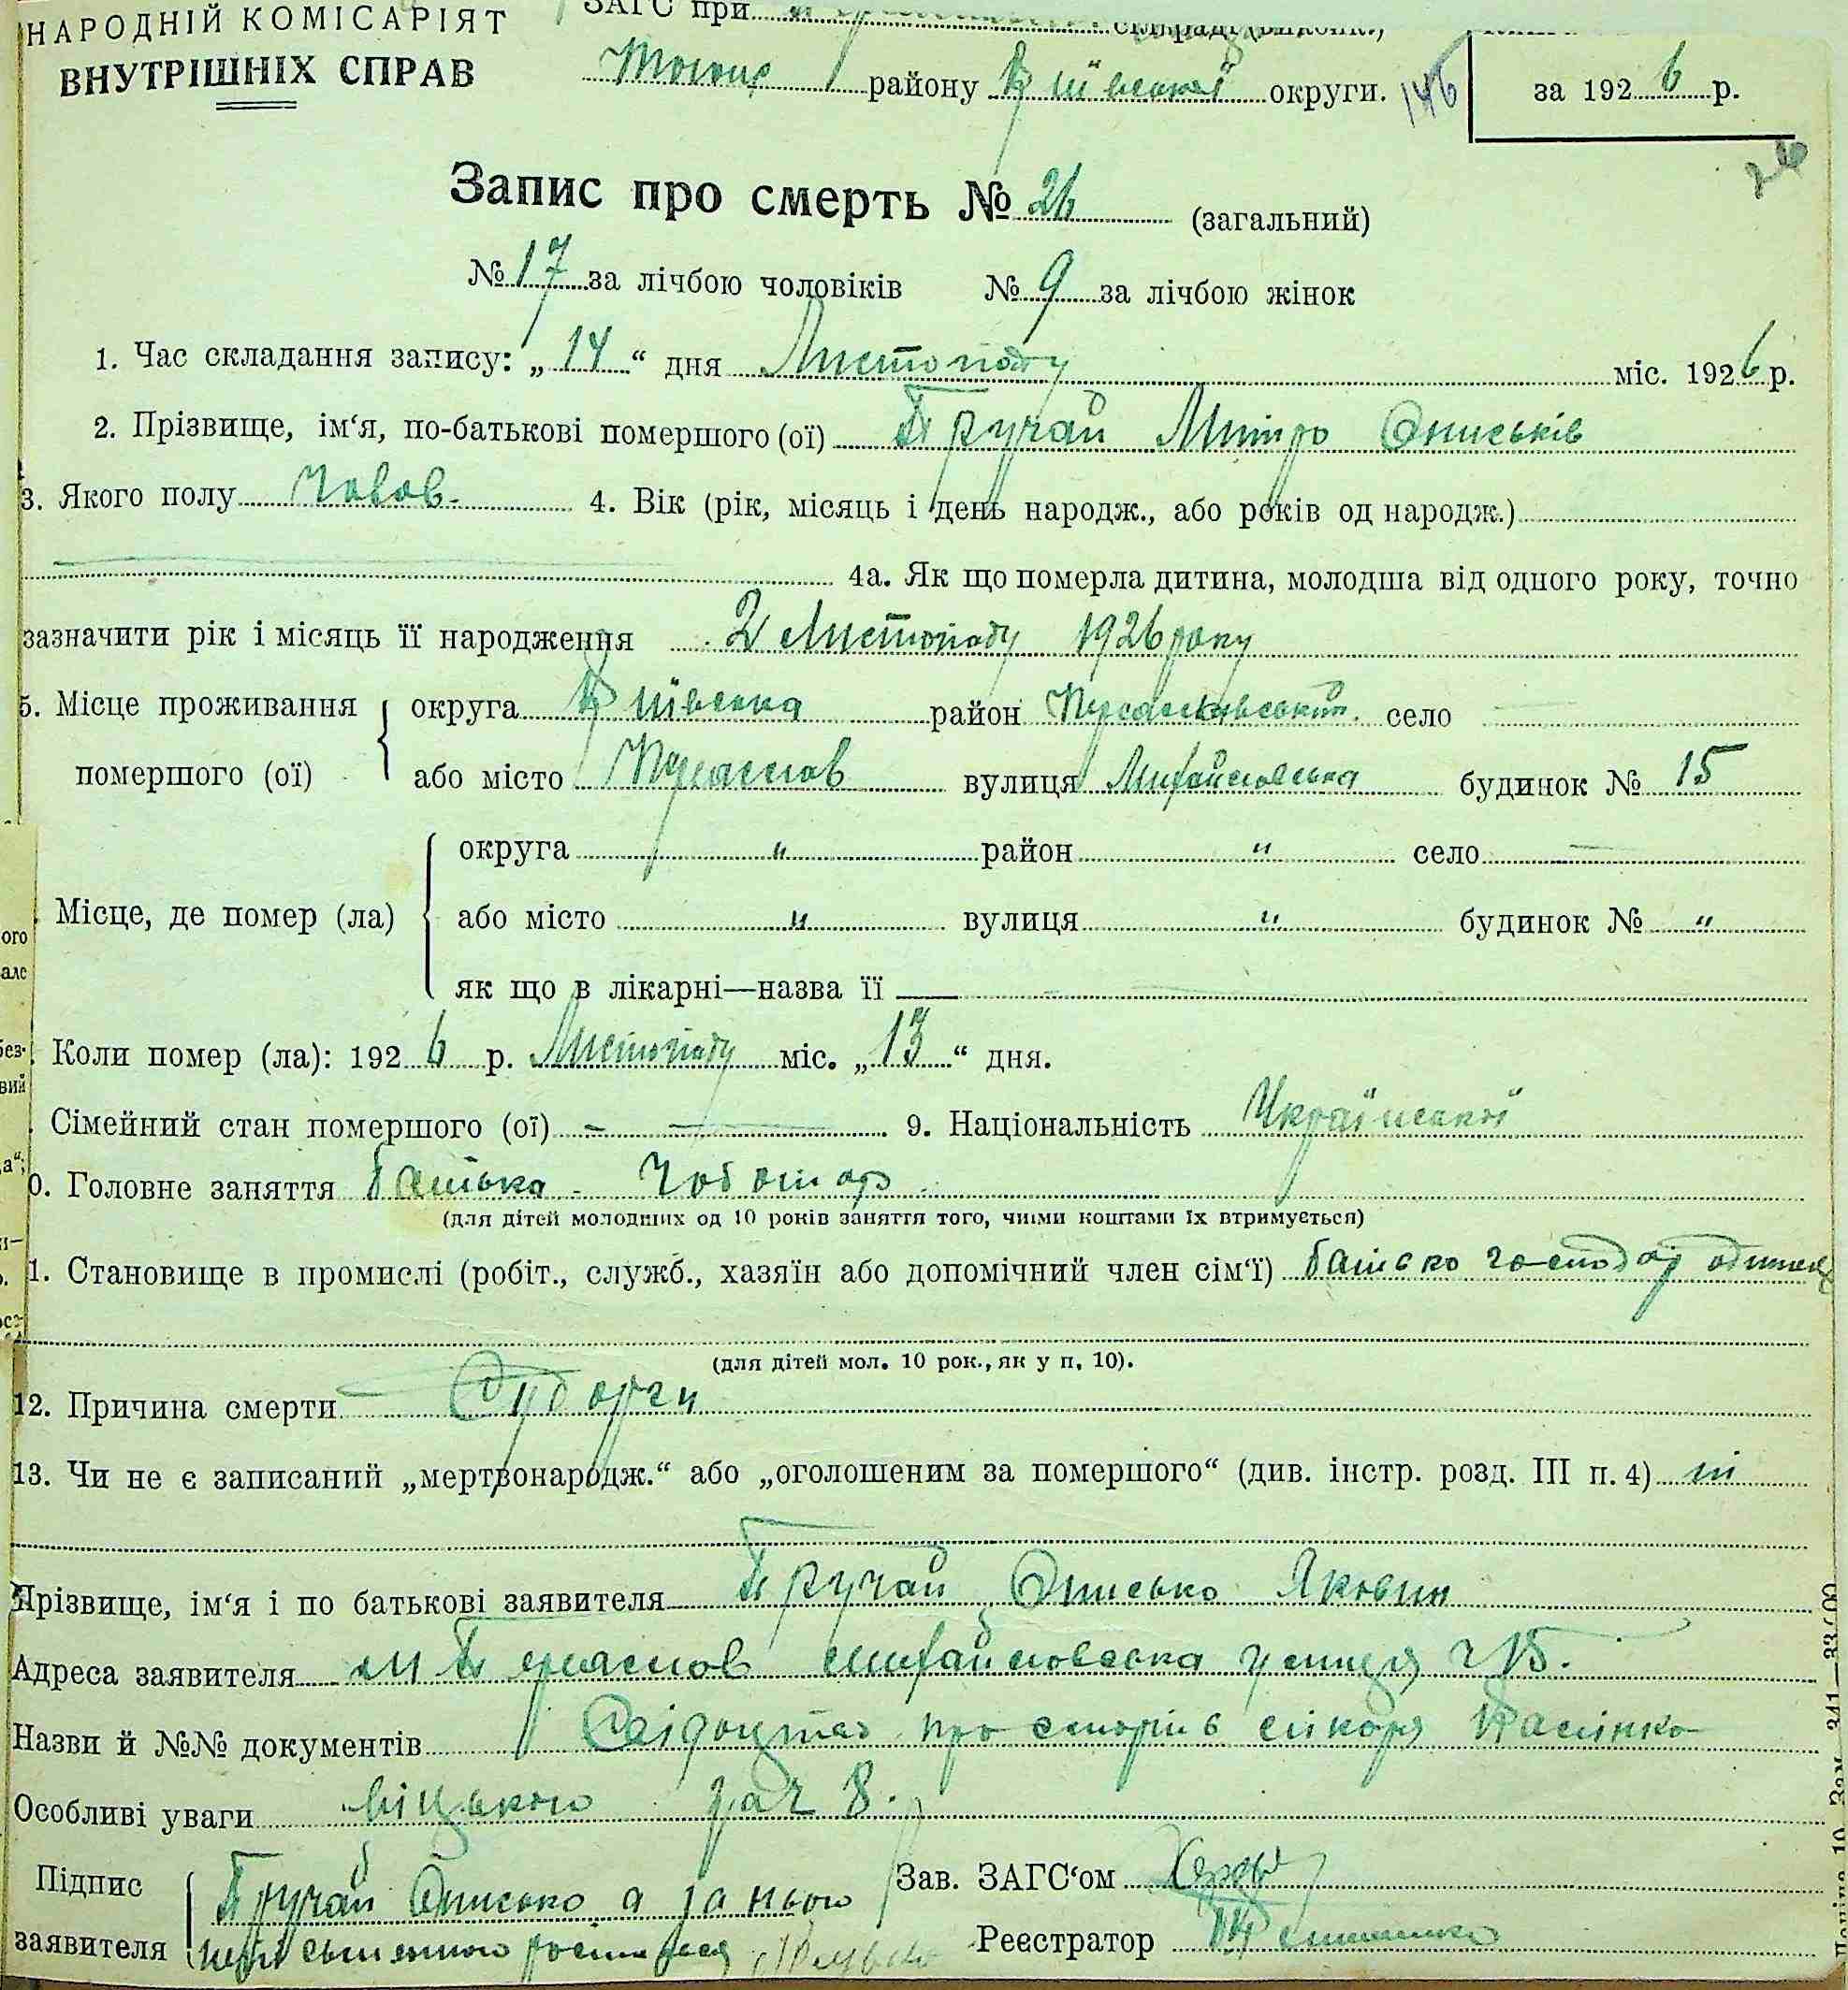 НАРОДНІЙ КОМІСАРІЯТ
ВНУТРІШНІХ СПРАВ
ЗАГС при
району Київської округи.
146
за 1926 р.
26
Запис про смерть № 26 (загальний)
№ 17 за лічбою чоловіків № 9 за лічбою жінок
1. Час складання запису: „14“ дня Листопаду міс. 1926 р.
2. Прізвище, ім‘я, по-батькові помершого (ої) Пручай Митро Ониськів
3. Якого полу чолов. 4. Вік (рік, місяць і день народж., або років од народж.)
4а. Як що померла дитина, молодша від одного року, точно
зазначити рік і місяць її народження 2 Листопаду 1926 року
5. Місце проживання округа Київська район село —
помершого (ої) або місто вулиця Михайловська будинок № 15
округа " район " село —
Місце, де помер (ла) або місто " вулиця " будинок № "
як що в лікарні—назва її —
Коли помер (ла): 1926 р. Листопаду міс. „13“ дня.
Сімейний стан помершого (ої) — 9. Національність Української
0. Головне заняття батька Чоботар
(для дітей молодших од 10 років заняття того, чиїми коштами їх втримується)
1. Становище в промислі (робіт., служб., хазяїн або допомічний член сім‘ї) батько господар
(для дітей мол. 10 рок., як у п. 10).
12. Причина смерти Судорги
13. Чи не є записаний „мертвонародж.“ або „оголошеним за помершого“ (див. інстр. розд. III п. 4) ні
Прізвище, ім‘я і по батькові заявителя Пручай Онисько Яковин
Адреса заявителя м Переяслов михайловська улиця ч 15.
Назви й №№ документів про смерть лікаря
Особливі уваги за ч 8.
Підпис Пручай Онисько а за нього Зав. ЗАГС‘ом
заявителя Реєстратор